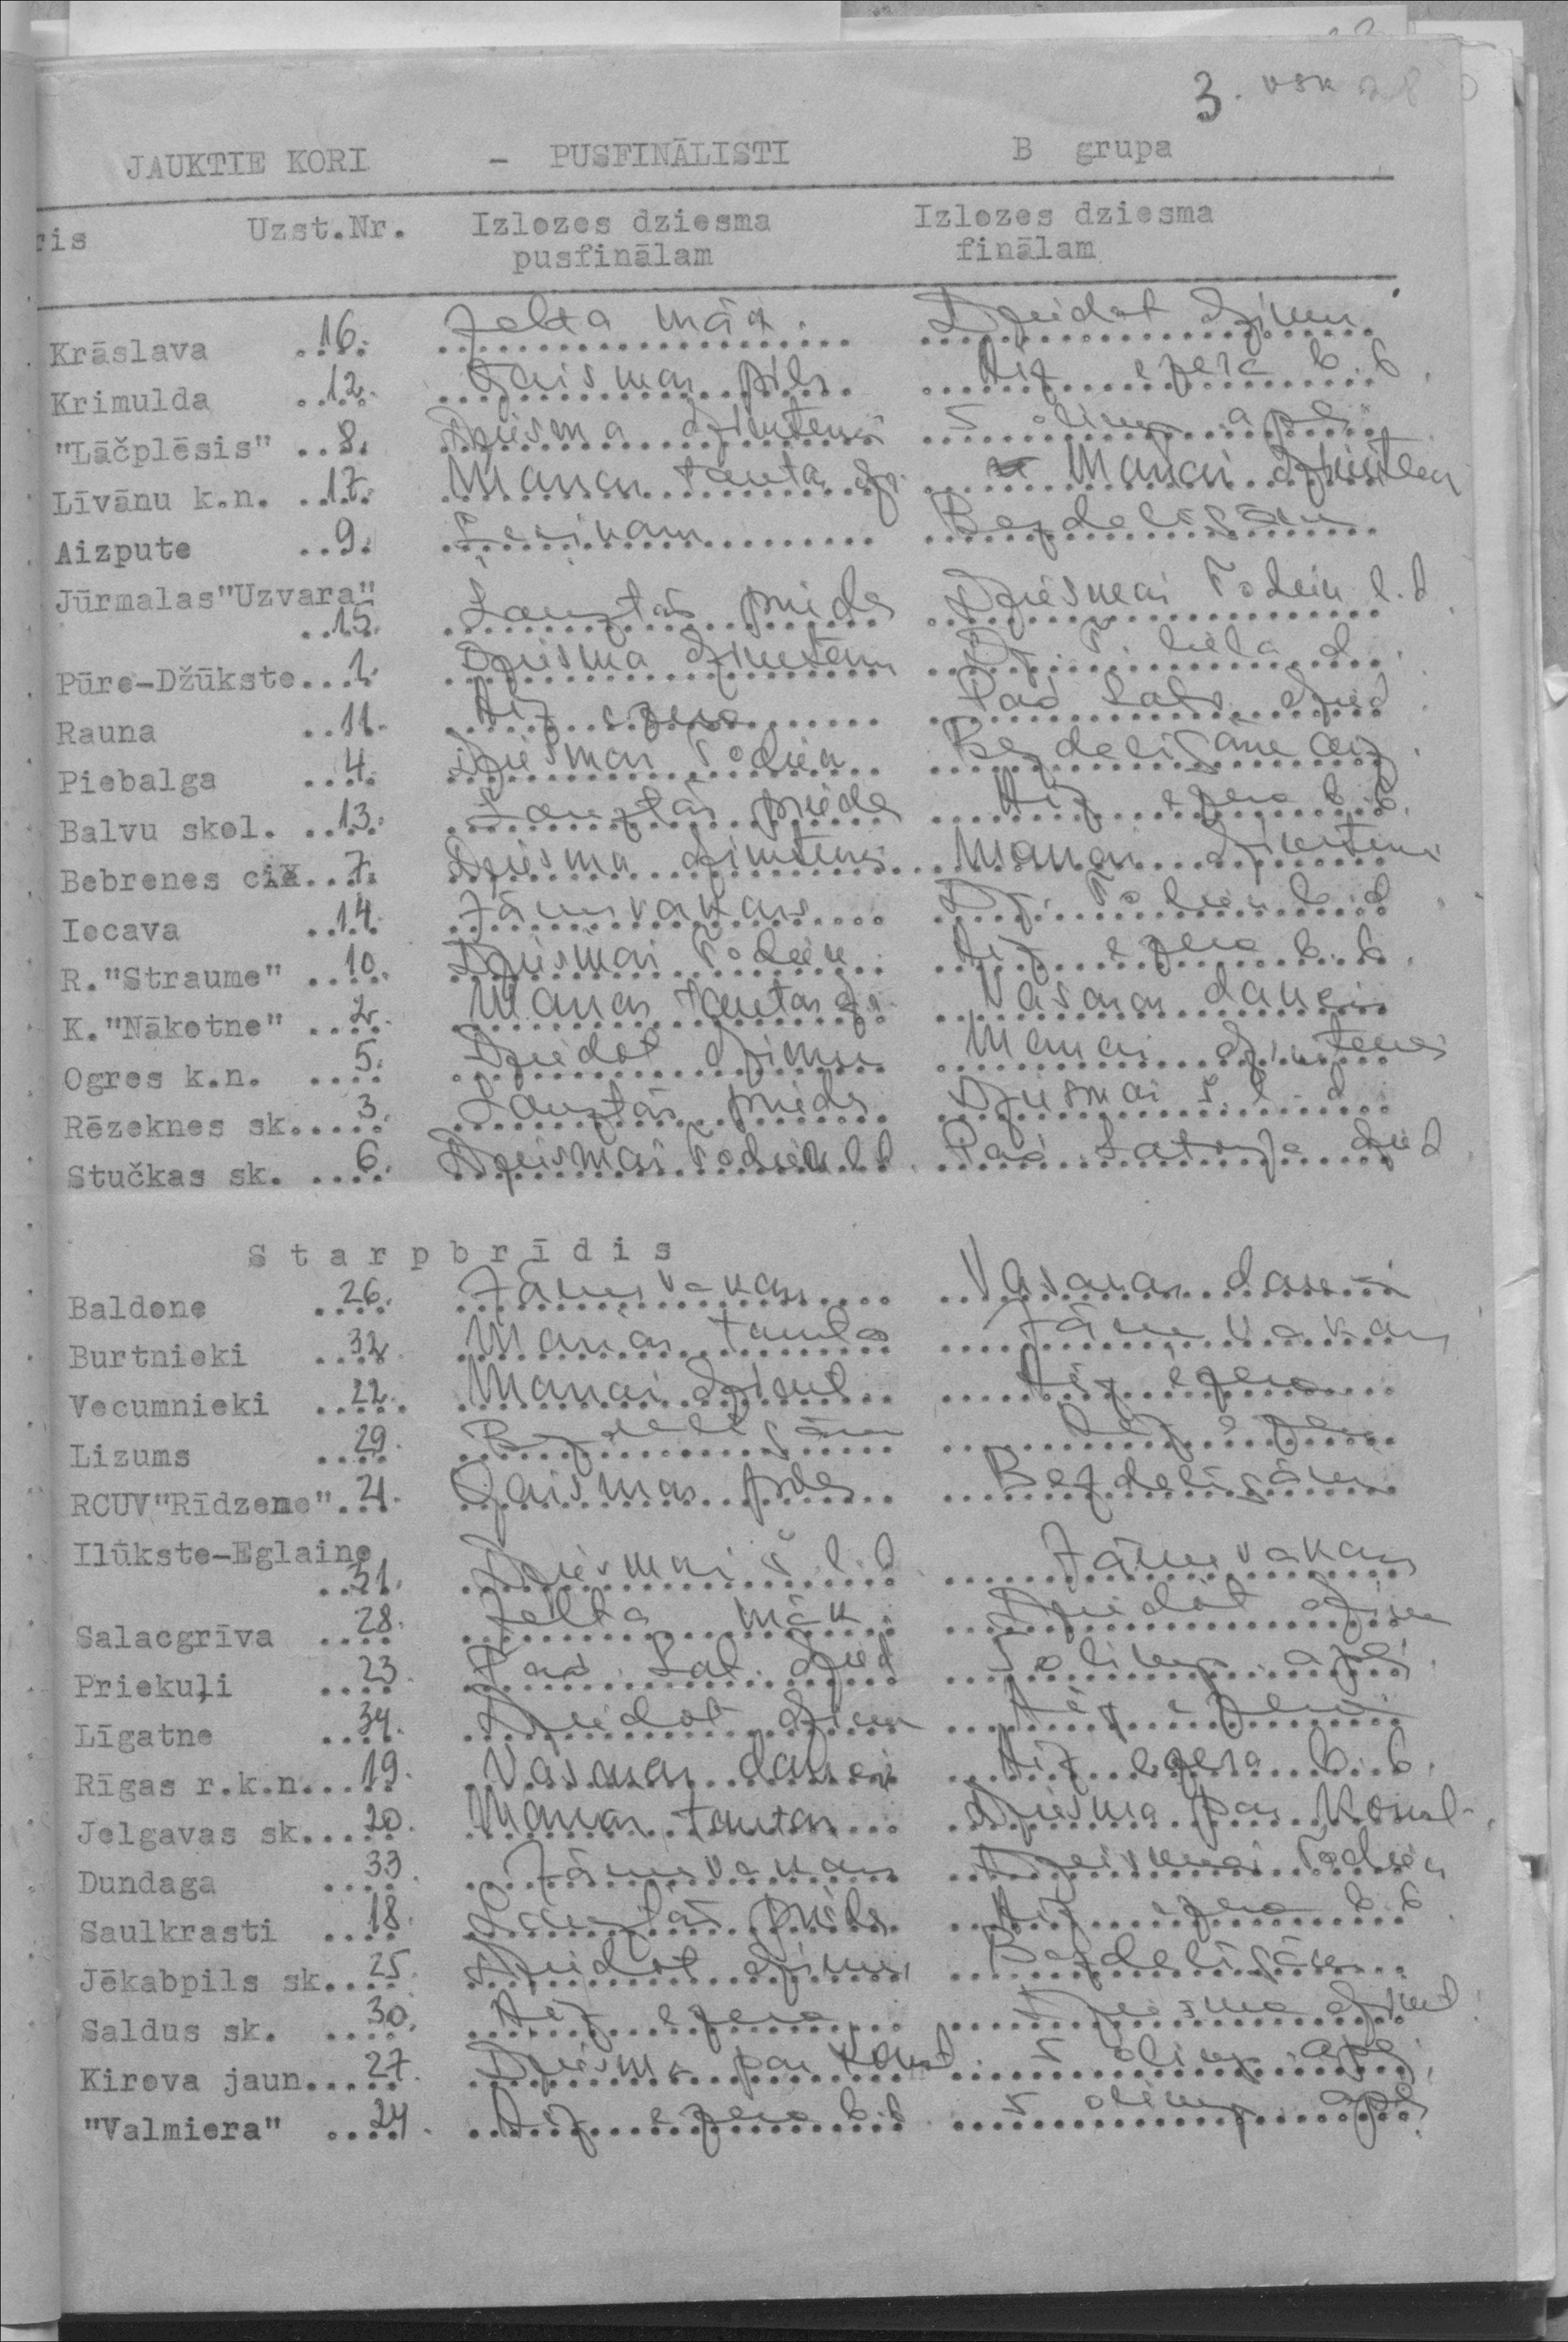 3. vsk
JAUKTIE KORI - PUSFINĀLISTI B grupa
ris Uzst.Nr. Izlozes dziesma Izlozes dziesma
pusfinālam finālam
Krāslava 16. Zelta māk. Dziedot dzimu
Krimulda 12. Gaismas pils Aiz ezera b.b.
"Lāčplēsis" 8. Dziesma dzimtenei 5 olimp. apļi
Līvānu k.n. 17. Manas tautas dz. Manai dzimtenei
Aizpute 9. Ļeņinam Bezdelīgām
Jūrmalas"Uzvara"
15. Lauztās priedes Dziesmai šodien l.d.
Pūre-Džūkste 1. Dziesma dzimtenei Dz. š. liela d.
Rauna 11. Aiz ezera Pad Latv. dzied
Piebalga 4. Dziesmai šodien Bezdelīgāme aiz
Balvu skol. 13. Lauztās priedes Aiz ezera b.b.
Bebrenes ciX 7. Dziesma dzimtenei Manai dzimtenei
Iecava 14. Jāņuvakars Dz. šodien l.d.
R."Straume" 10. Dziesmai šodien Aiz ezera b.b.
K."Nākotne" 2. Manas tautas dz. Vasaras dancis
Ogres k.n. 5. Dziedot dzimu Manai dzimtenei
Rēzeknes sk. 3. Lauztās priedes Dziesmai š.l.d.
Stučkas sk. 6. Dziesmai šodien l.d. Pad Latvija dzied
Starpbrīdis
Baldone 26. Jāņuvakars Vasaras dancis
Burtnieki 32. Manas tautas Jāņuvakars
Vecumnieki 22. Manai dzimt. Aiz ezera
Lizums 29. Bezdelīgām Aiz ezera
RCUV"Rīdzene" 21. Gaismas pils Bezdelīgām
Ilūkste-Eglaine
31. Dziesmai š.l.d. Jāņuvakars
Salacgrīva 28. Zelta māk. Dziedot dzimu
Priekuļi 23. Pad. Lat. dzied 5 olimp. apļi
Līgatne 34. Dziedot dzimu Aiz ezera
Rīgas r.k.n. 19. Vasaras dancis Aiz ezera b.b.
Jelgavas sk. 20. Manas tautas Dziesma par Komt.
Dundaga 33. Jāņuvakars Dziesmai šodien
Saulkrasti 18. Lauztās priedes Aiz ezera b.b.
Jēkabpils sk. 25. Dziedot dzimu Bezdelīgām
Saldus sk. 30. Aiz ezera Dziesma dzimt.
Kirova jaun. 27. Dziesma par 5 olimp. apļi
"Valmiera" 24. Aiz ezera b.b. 5 olimp. apļi